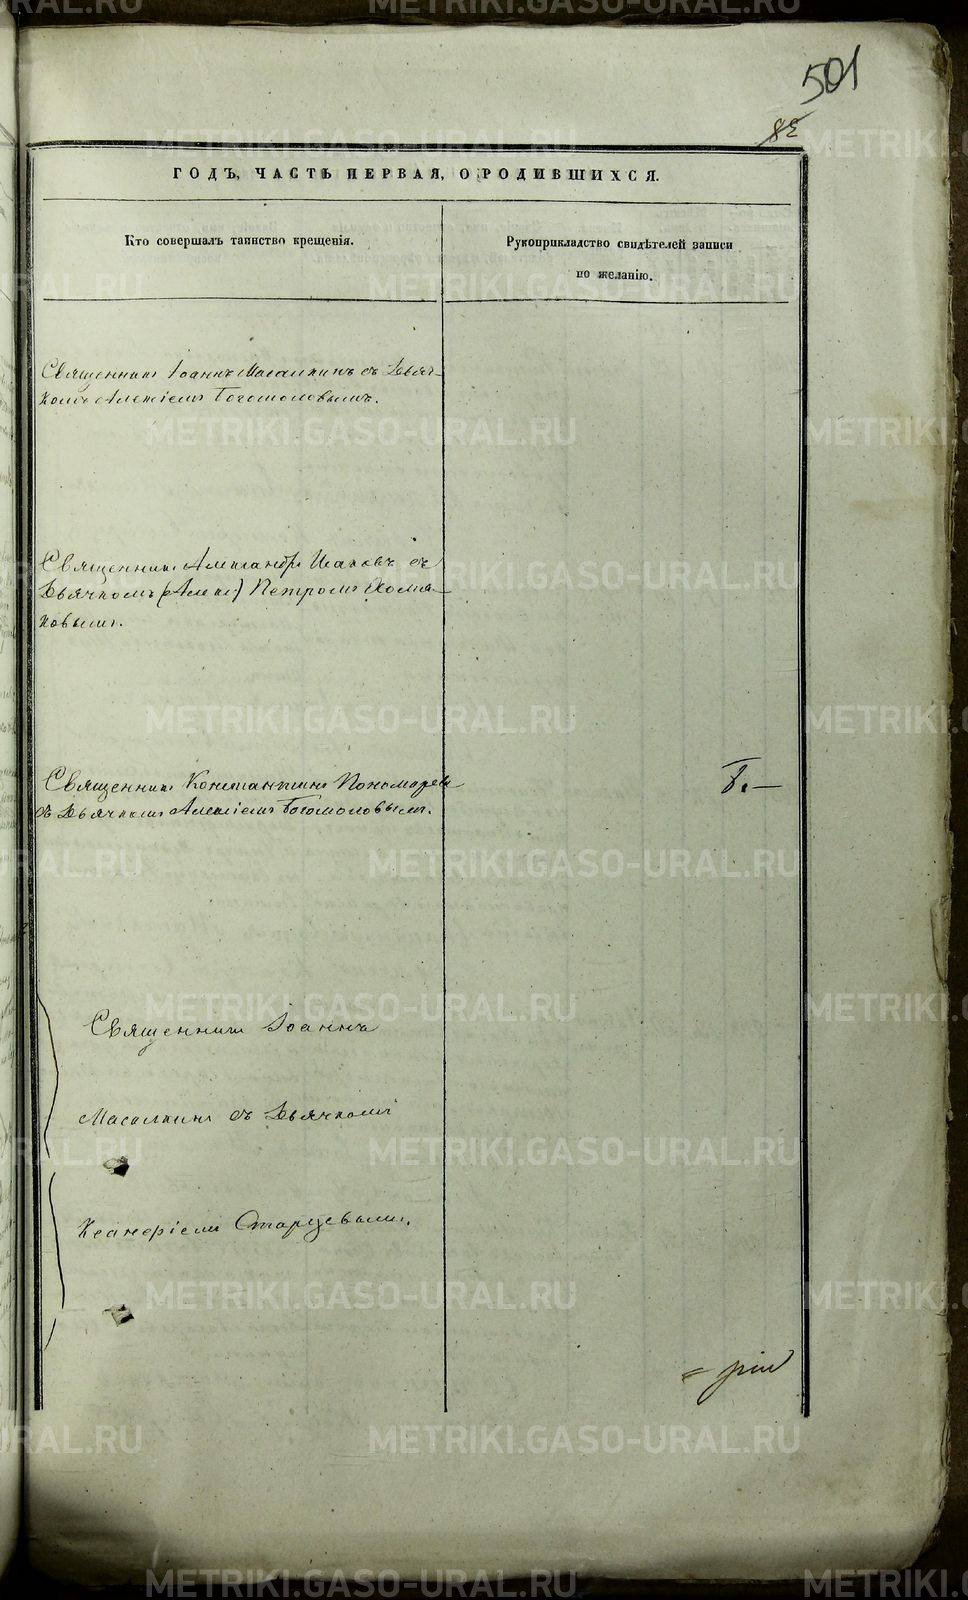 501
82
ГОДЪ, ЧАСТЬ ПЕРВАЯ, О РОДИВШИХСЯ.
Кто совершалъ таинство крещенія.
Рукоприкладство свидѣтелей записи
по желанію.
Священникъ Іоаннъ Масалкинъ съ Дьяч-
комъ Алексіемъ Богомоловымъ.
Священникъ Александръ съ
Дьячкомъ Петромъ Хомя-
ковымъ.
Священникъ Константинъ Пономаревъ
съ Дьячкомъ Алексіемъ Богомоловымъ.
Священникъ Іоаннъ
Масалкинъ съ Дьячкомъ
Ксанфіемъ Старцевымъ.
METRIKI.GASO-URAL.RU